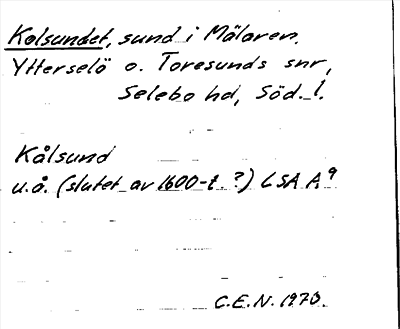 Kolsundet, sund i Mälaren.
Ytterselö o. Toresunds snr,
Selebo hd, Söd. l.
Kålsund
u.å. (slutet av 1600-t. ?) LSA A9
C.E.N. 1970.